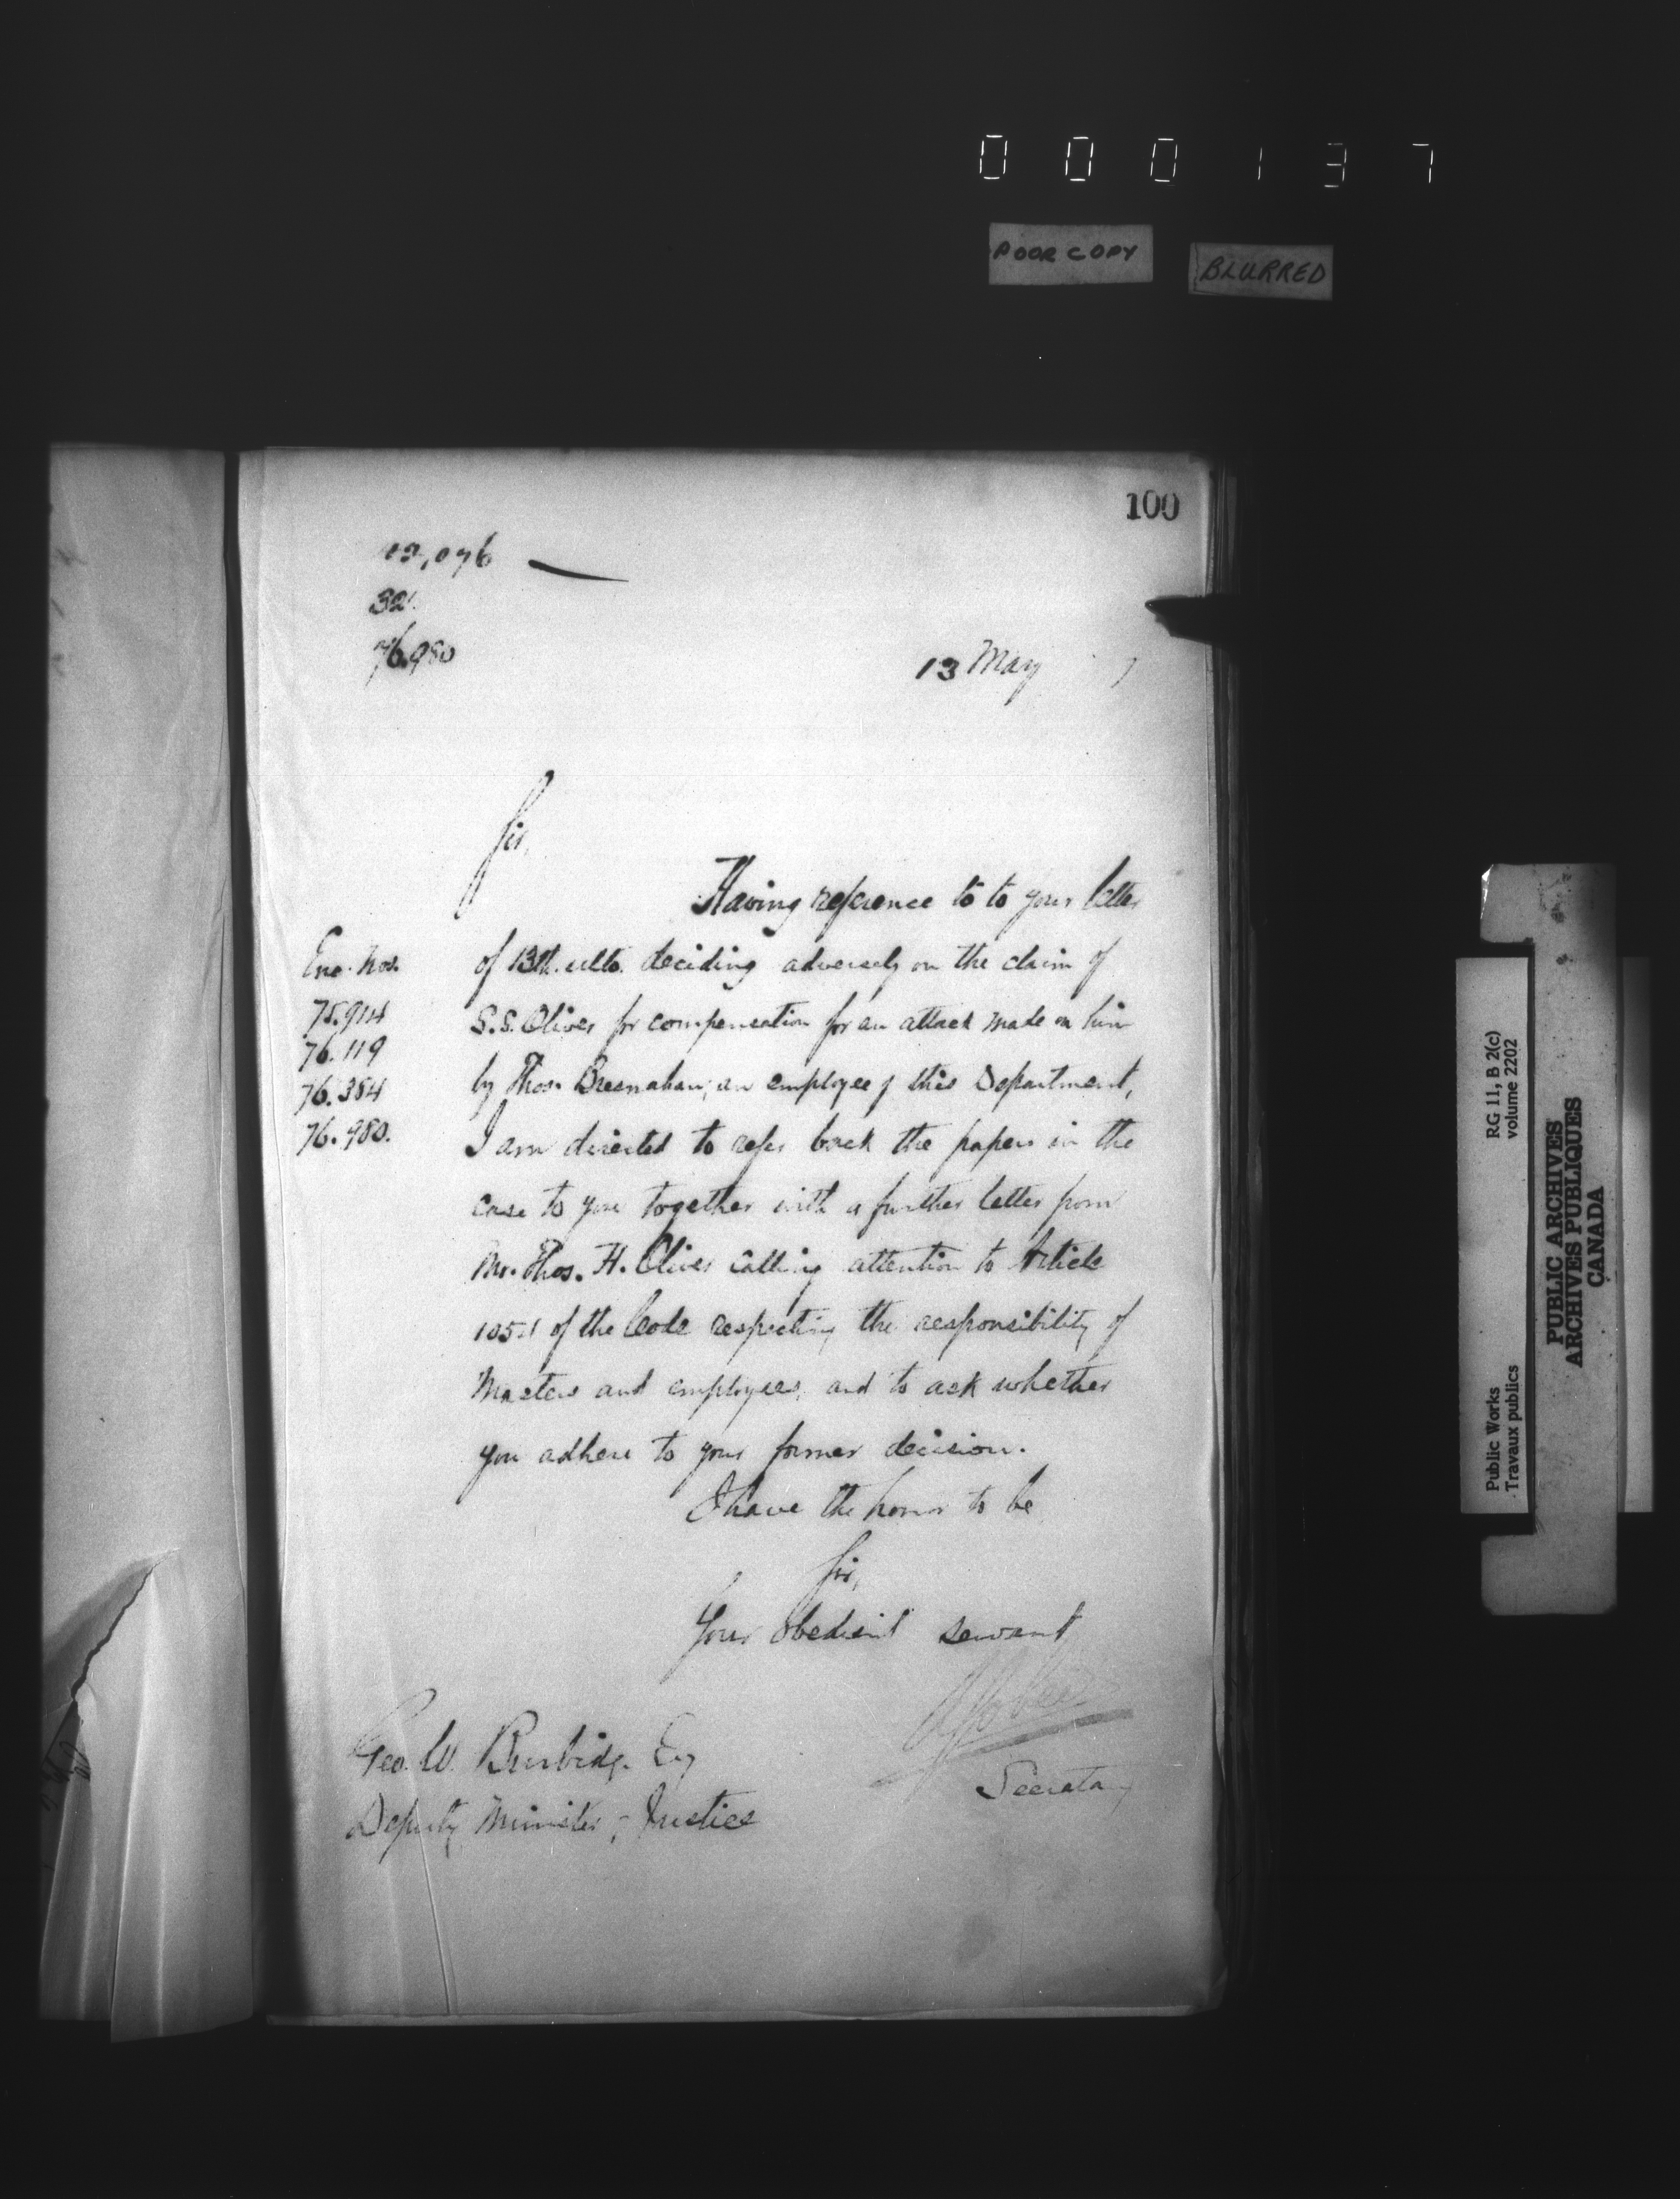 000137
POOR COPY
BLURRED
100
12,076
32
76.980
13 May 7
Sir,
Having reference to to your letter
of 13th. ulto. deciding adversely on the claim of
S.S. Oliver for compensation for an attack made on him
by Thos. Bresnahan, an employee of this Department,
I am directed to refer back the papers in the
case to you together with a further letter from
Mr. Thos. H. Oliver calling attention to Article
1054 of the Code respecting the responsibility of
Masters and employees, and to ask whether
you adhere to your former decision.
Enc. Nos.
75.914
76.119
76.384
76.980.
I have the honor to be
Sir,
Your obedient servant
Secretary
Geo. W. Burbidge Esq
Deputy Minister of Justice
Public Works
Travaux publics
RG 11, B 2(c)
volume 2202
PUBLIC ARCHIVES
ARCHIVES PUBLIQUES
CANADA